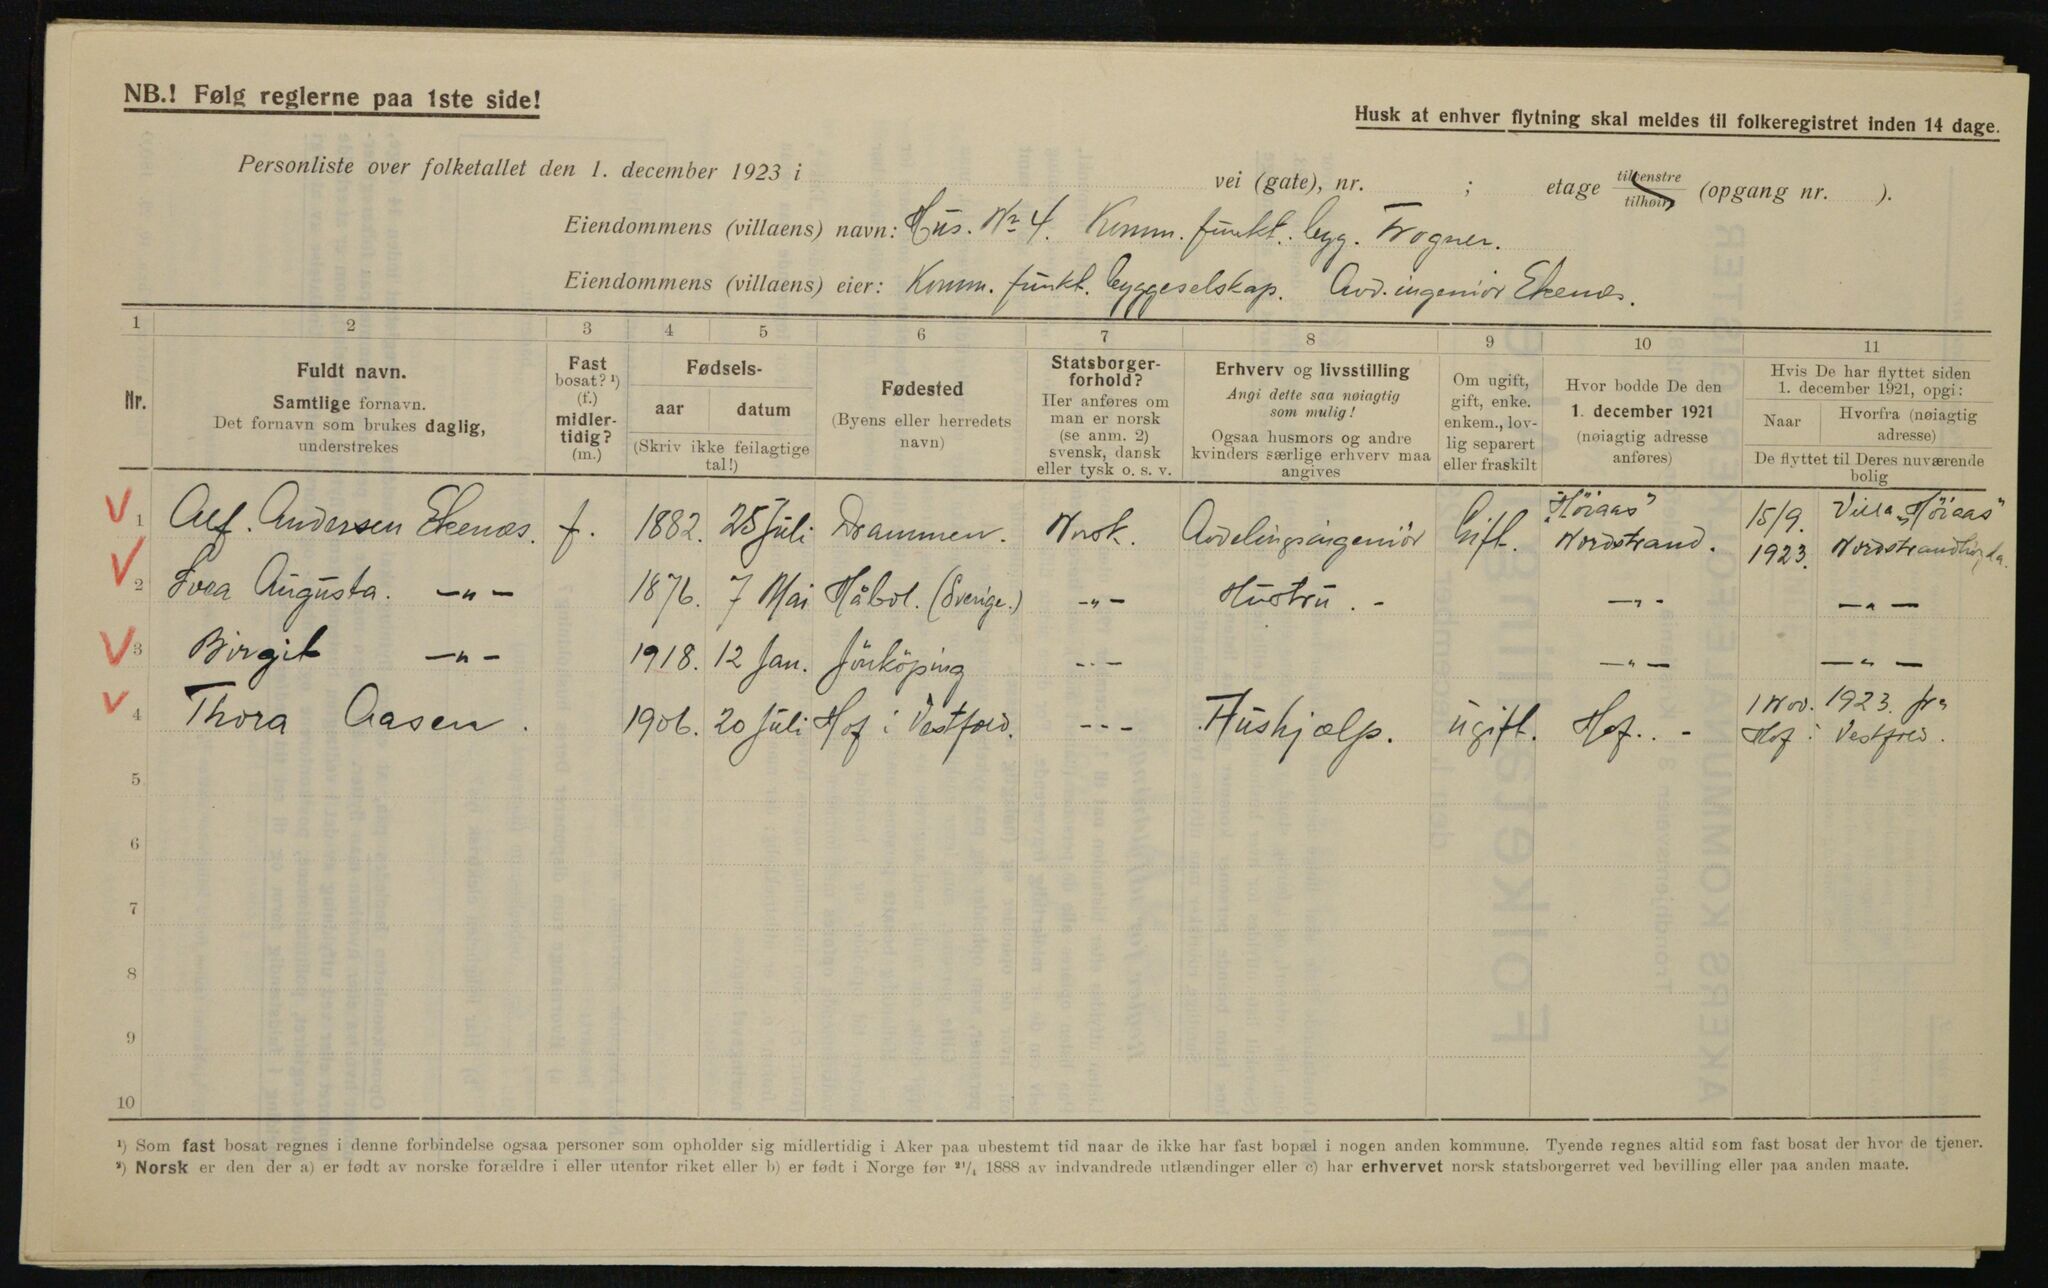 NB.! Følg reglerne paa 1ste side!
Husk at enhver flytning skal meldes til folkeregistret inden 14 dage.
Personliste over folketallet den 1. december 1923 i vei (gate), nr. ; etage tilvenstre tilhøire (opgang nr. ).
Eiendommens (villaens) navn: Hus. No 4. Komm. funkt. bygg. Frogner.
Eiendommens (villaens) eier: Komm. funkt. byggeselskap. Avd. ingeniör Ekenæs.
1 2 3 4 5 6 7 8 9 10 11
Nr.
Fuldt navn.
Samtlige fornavn.
Det fornavn som brukes daglig,
understrekes
Fast
bosat? ¹)
(f.)
midler-
tidig?
(m.)
Fødsels-
aar datum
(Skriv ikke feilagtige
tal!)
Fødested
(Byens eller herredets
navn)
Statsborger-
forhold?
Her anføres om
man er norsk
(se anm. 2)
svensk, dansk
eller tysk o. s. v.
Erhverv og livsstilling
Angi dette saa nøiagtig
som mulig!
Ogsaa husmors og andre
kvinders særlige erhverv maa
angives
Om ugift,
gift, enke.
enkem., lov-
lig separert
eller fraskilt
Hvor bodde De den
1. december 1921
(nøiagtig adresse
anføres)
Hvis De har flyttet siden
1. december 1921, opgi:
Naar Hvorfra (nøiagtig
adresse)
De flyttet til Deres nuværende
bolig
1 Alf. Andersen Ekenæs. f. 1882. 25 Juli Drammen. Norsk. Avdelingsingeniör Gift. "Höiaas" Nordstrand. 15/9. 1923. Villa "Höiaas"
2 Augusta. —"— 1876. 7 Mai Håbol. (Sverige.) -"- Hustru. - —"— —"—
3 Birgit —"— 1918. 12 Jan. Jönköping -"- —"— —"—
4 Thora Aasen. 1906. 20 Juli Hof i Vestfold. --- Hushjælp. ugift. Hof. - 1 Nov. 1923. fra
Hof i Vestfold.
5
6
7
8
9
10
¹) Som fast bosat regnes i denne forbindelse ogsaa personer som opholder sig midlertidig i Aker paa ubestemt tid naar de ikke har fast bopæl i nogen anden kommune. Tyende regnes altid som fast bosat der hvor de tjener.
²) Norsk er den der a) er født av norske forældre i eller utenfor riket eller b) er født i Norge før ²¹/₄ 1888 av indvandrede utlændinger eller c) har erhvervet norsk statsborgerret ved bevilling eller paa anden maate.